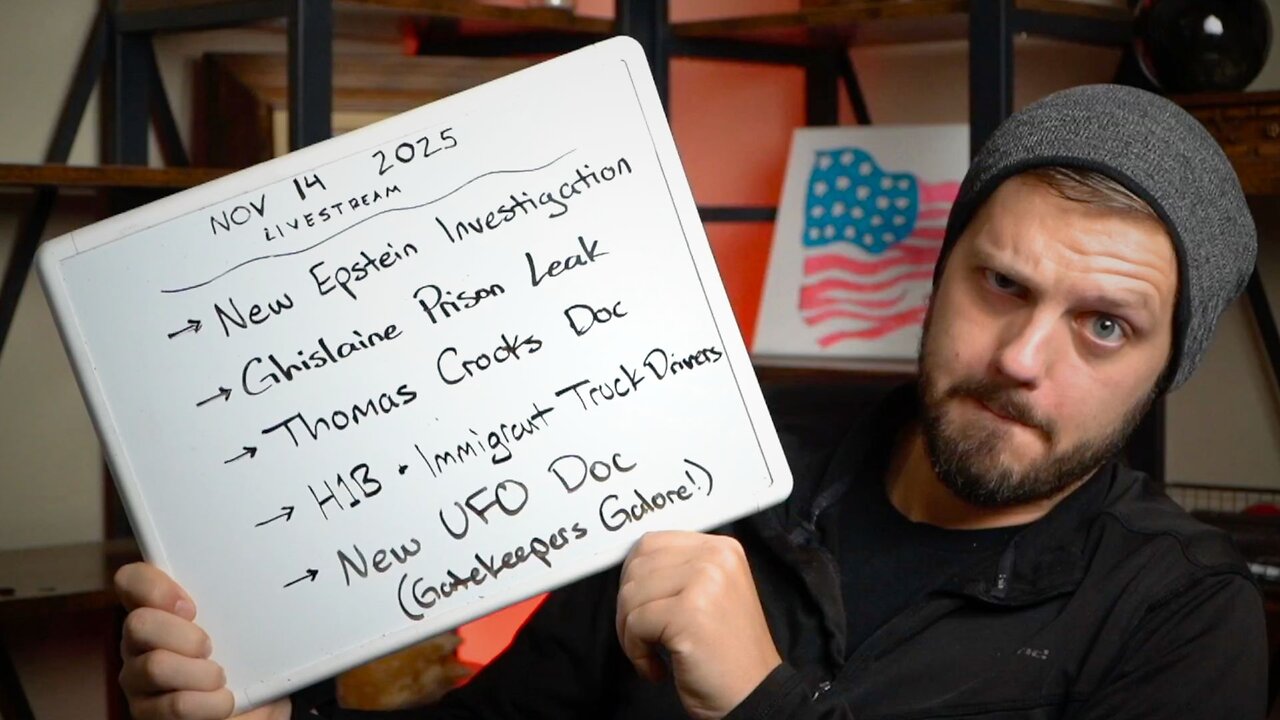 NOV 14 2025
LIVESTREAM
→ New Epstein Investigation
→ Ghislaine Prison Leak
→ Thomas Crooks Doc
→ H1B • Immigrant Truck Drivers
→ New UFO Doc
(Gatekeepers Galore!)